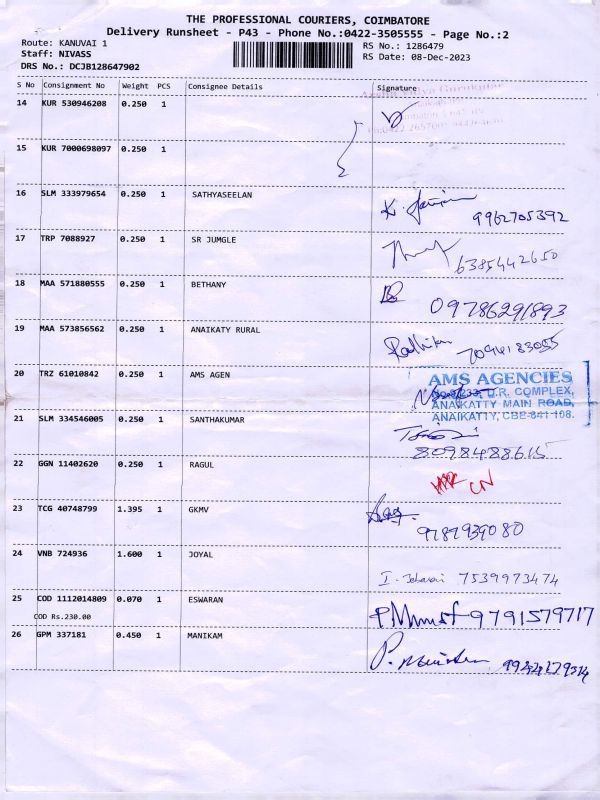 THE PROFESSIONAL COURIERS, COIMBATORE
Delivery Runsheet - P43 - Phone No.:0422-3505555 - Page No.:2
Route: KANUVAI 1
RS No.: 1286479
Staff: NIVASS
RS Date: 08-Dec-2023
DRS No.: DCJB128647902
S No Consignment No Weight PCS Consignee Details Signature
14 KUR 530946208 0.250 1
15 KUR 7000698097 0.250 1
16 SLM 333979654 0.250 1 SATHYASEELAN
9962705392
17 TRP 7088927 0.250 1 SR JUMGLE
6385442650
18 MAA 571880555 0.250 1 BETHANY
09786291893
19 MAA 573856562 0.250 1 ANAIKATY RURAL
7094183055
20 TRZ 61010842 0.250 1 AMS AGEN
AMS AGENCIES
COMPLEX,
ANAIKATTY MAIN ROAD,
ANAIKATTY, CBE-641 108.
21 SLM 334546005 0.250 1 SANTHAKUMAR
8098488615
22 GGN 11402620 0.250 1 RAGUL
CN
23 TCG 40748799 1.395 1 GKMV
9787939080
24 VNB 724936 1.600 1 JOYAL
7539973474
25 COD 1112014809 0.070 1 ESWARAN
9791579717
COD Rs.230.00
26 GPM 337181 0.450 1 MANIKAM